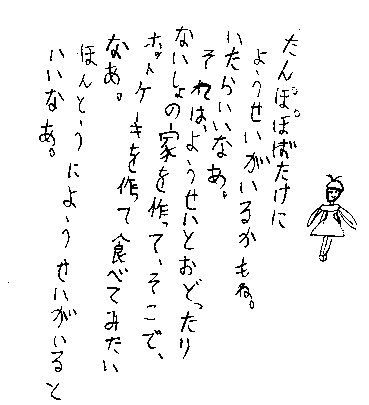 たんぽぽばたけに
ようせいがいるかもね。
いたらいいなあ。
それは、ようせいとおどったり
ないしょの家を作って、そこで、
ホットケーキを作って食べてみたい
なあ。
ほんとうにようせいがいると
いいなあ。